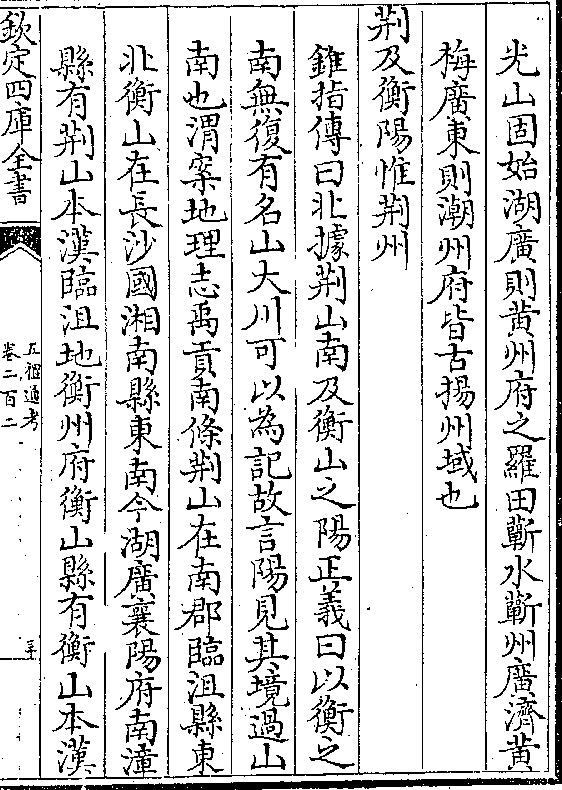 光山固始湖廣則黄州府之羅田蘄水蘄州廣濟黄
梅廣東則潮州府皆古揚州域也
荆及衡陽惟荆州
錐指傳曰北據荆山南及衡山之陽正義曰以衡之
南無復有名山大川可以為記故言陽見其境過山
南也渭案地理志禹貢南條荆山在南郡臨沮縣東
北衡山在長沙國湘南縣東南今湖廣襄陽府南漳
縣有荆山本漢臨沮地衡州府衡山縣有衡山本漢
欽定四庫全書
五禮通考
卷二百二
三十